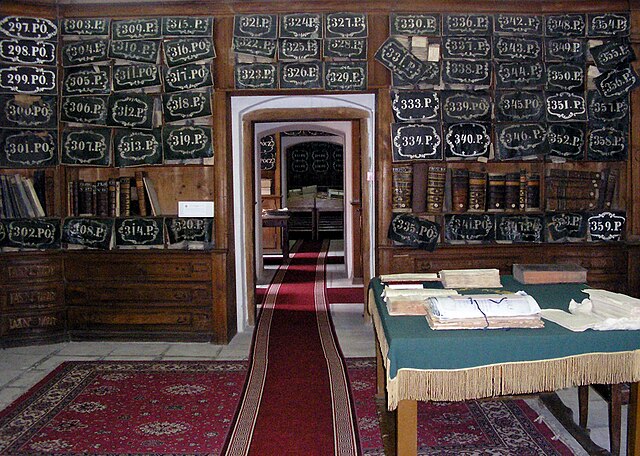 297.PÓ
298.PÓ
299.PÓ
300.PÓ
301.PÓ
302.PÓ
303.P.
304.P.
305.P.
306.P.
307.P.
308.P.
309.P.
310.P.
311.P.
312.P.
313.P.
314.P.
315.P.
316.P.
317.P.
318.P.
319.P.
320.P.
321.P.
322.P.
323.P.
324.P.
325.P.
326.P.
327.P.
328.P.
329.P.
330.P.
331.P.
333.P.
334.P.
335.P.
336.P.
337.P.
338.P.
339.PO
340.P.
341.P.
342.P.
343.P.
344.P.
345.PO
346.P.
347.P.
348.P.
349.P.
350.P.
351.P.
352.P.
353.P.
354.P.
355.P.
356.P.
357.P.
358.P.
359.P.